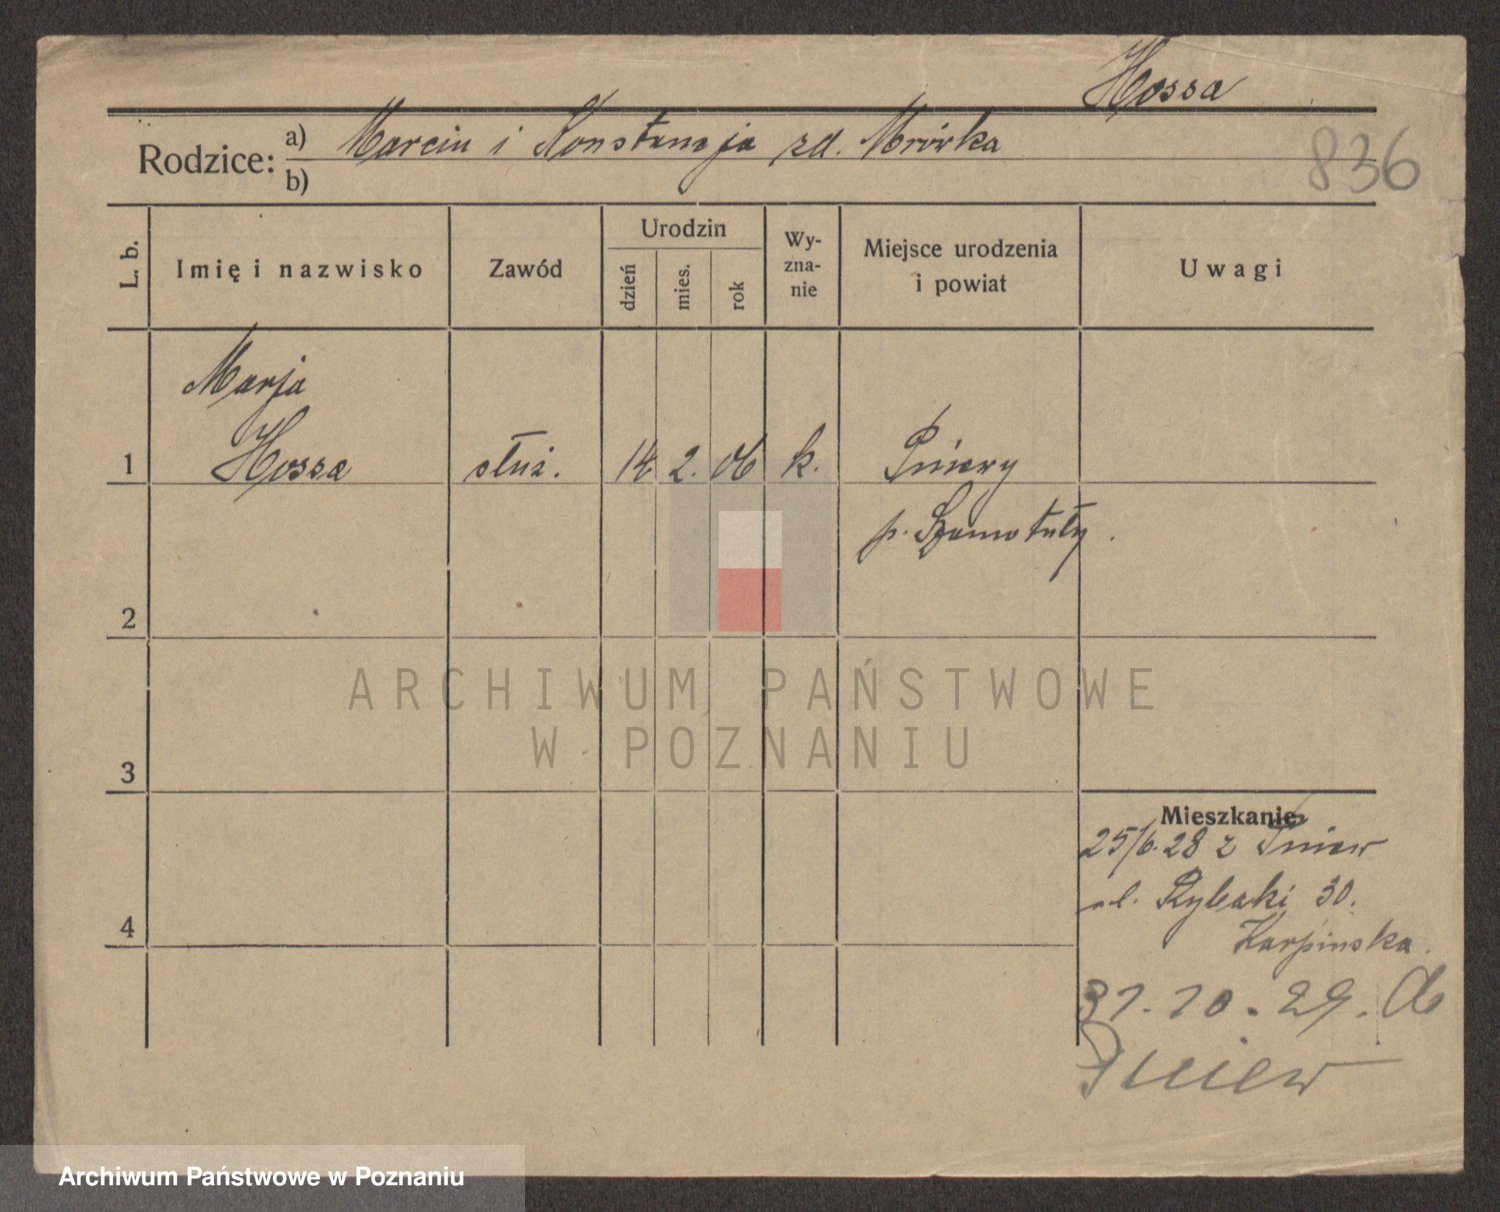 Hossa
Rodzice: a) Marcin i Konstancja zd. Mrówka
b)
836
L. b.
Imię i nazwisko
Zawód
Urodzin
dzień
mies.
rok
Wy-
zna-
nie
Miejsce urodzenia
i powiat
Uwagi
Marja
1 Hossa służ. 14. 2. 06 k. Pniewy
p. Szamotuły.
2
3
4
Mieszkanie
25/6. 28 z Pniew
ul. Rybaki 30.
Karpinska.
31. 10. 29. do
Pniew
ARCHIWUM PAŃSTWOWE
W POZNANIU
Archiwum Państwowe w Poznaniu